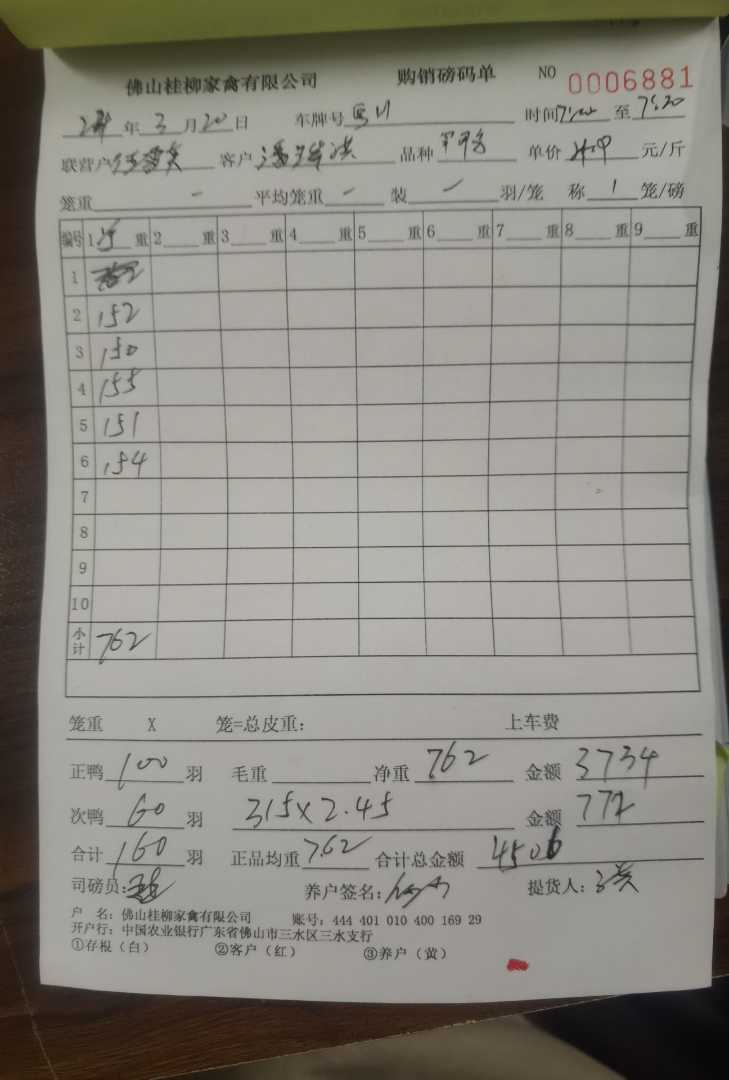 佛山桂柳家禽有限公司 购销磅码单 NO 0006881
年 3 月 20 日 车牌号 时间 7:00 至 7:20
联营户 客户 潘 洪 品种 单价 4.9 元/斤
笼重 一 平均笼重 一 装 一 羽/笼 称 1 笼/磅
编号 1 净 重 2 重 3 重 4 重 5 重 6 重 7 重 8 重 9 重
1
2 152
3 150
4 155
5 151
6 154
7
8
9
10
小计 762
笼重 X 笼=总皮重: 上车费
正鸭 100 羽 毛重 净重 762 金额 3734
次鸭 60 羽 315×2.45 金额 772
合计 160 羽 正品均重 7.62 合计总金额 4506
司磅员: 养户签名: 提货人:
户 名: 佛山桂柳家禽有限公司 账号: 444 401 010 400 169 29
开户行: 中国农业银行广东省佛山市三水区三水支行
①存根(白) ②客户(红) ③养户(黄)